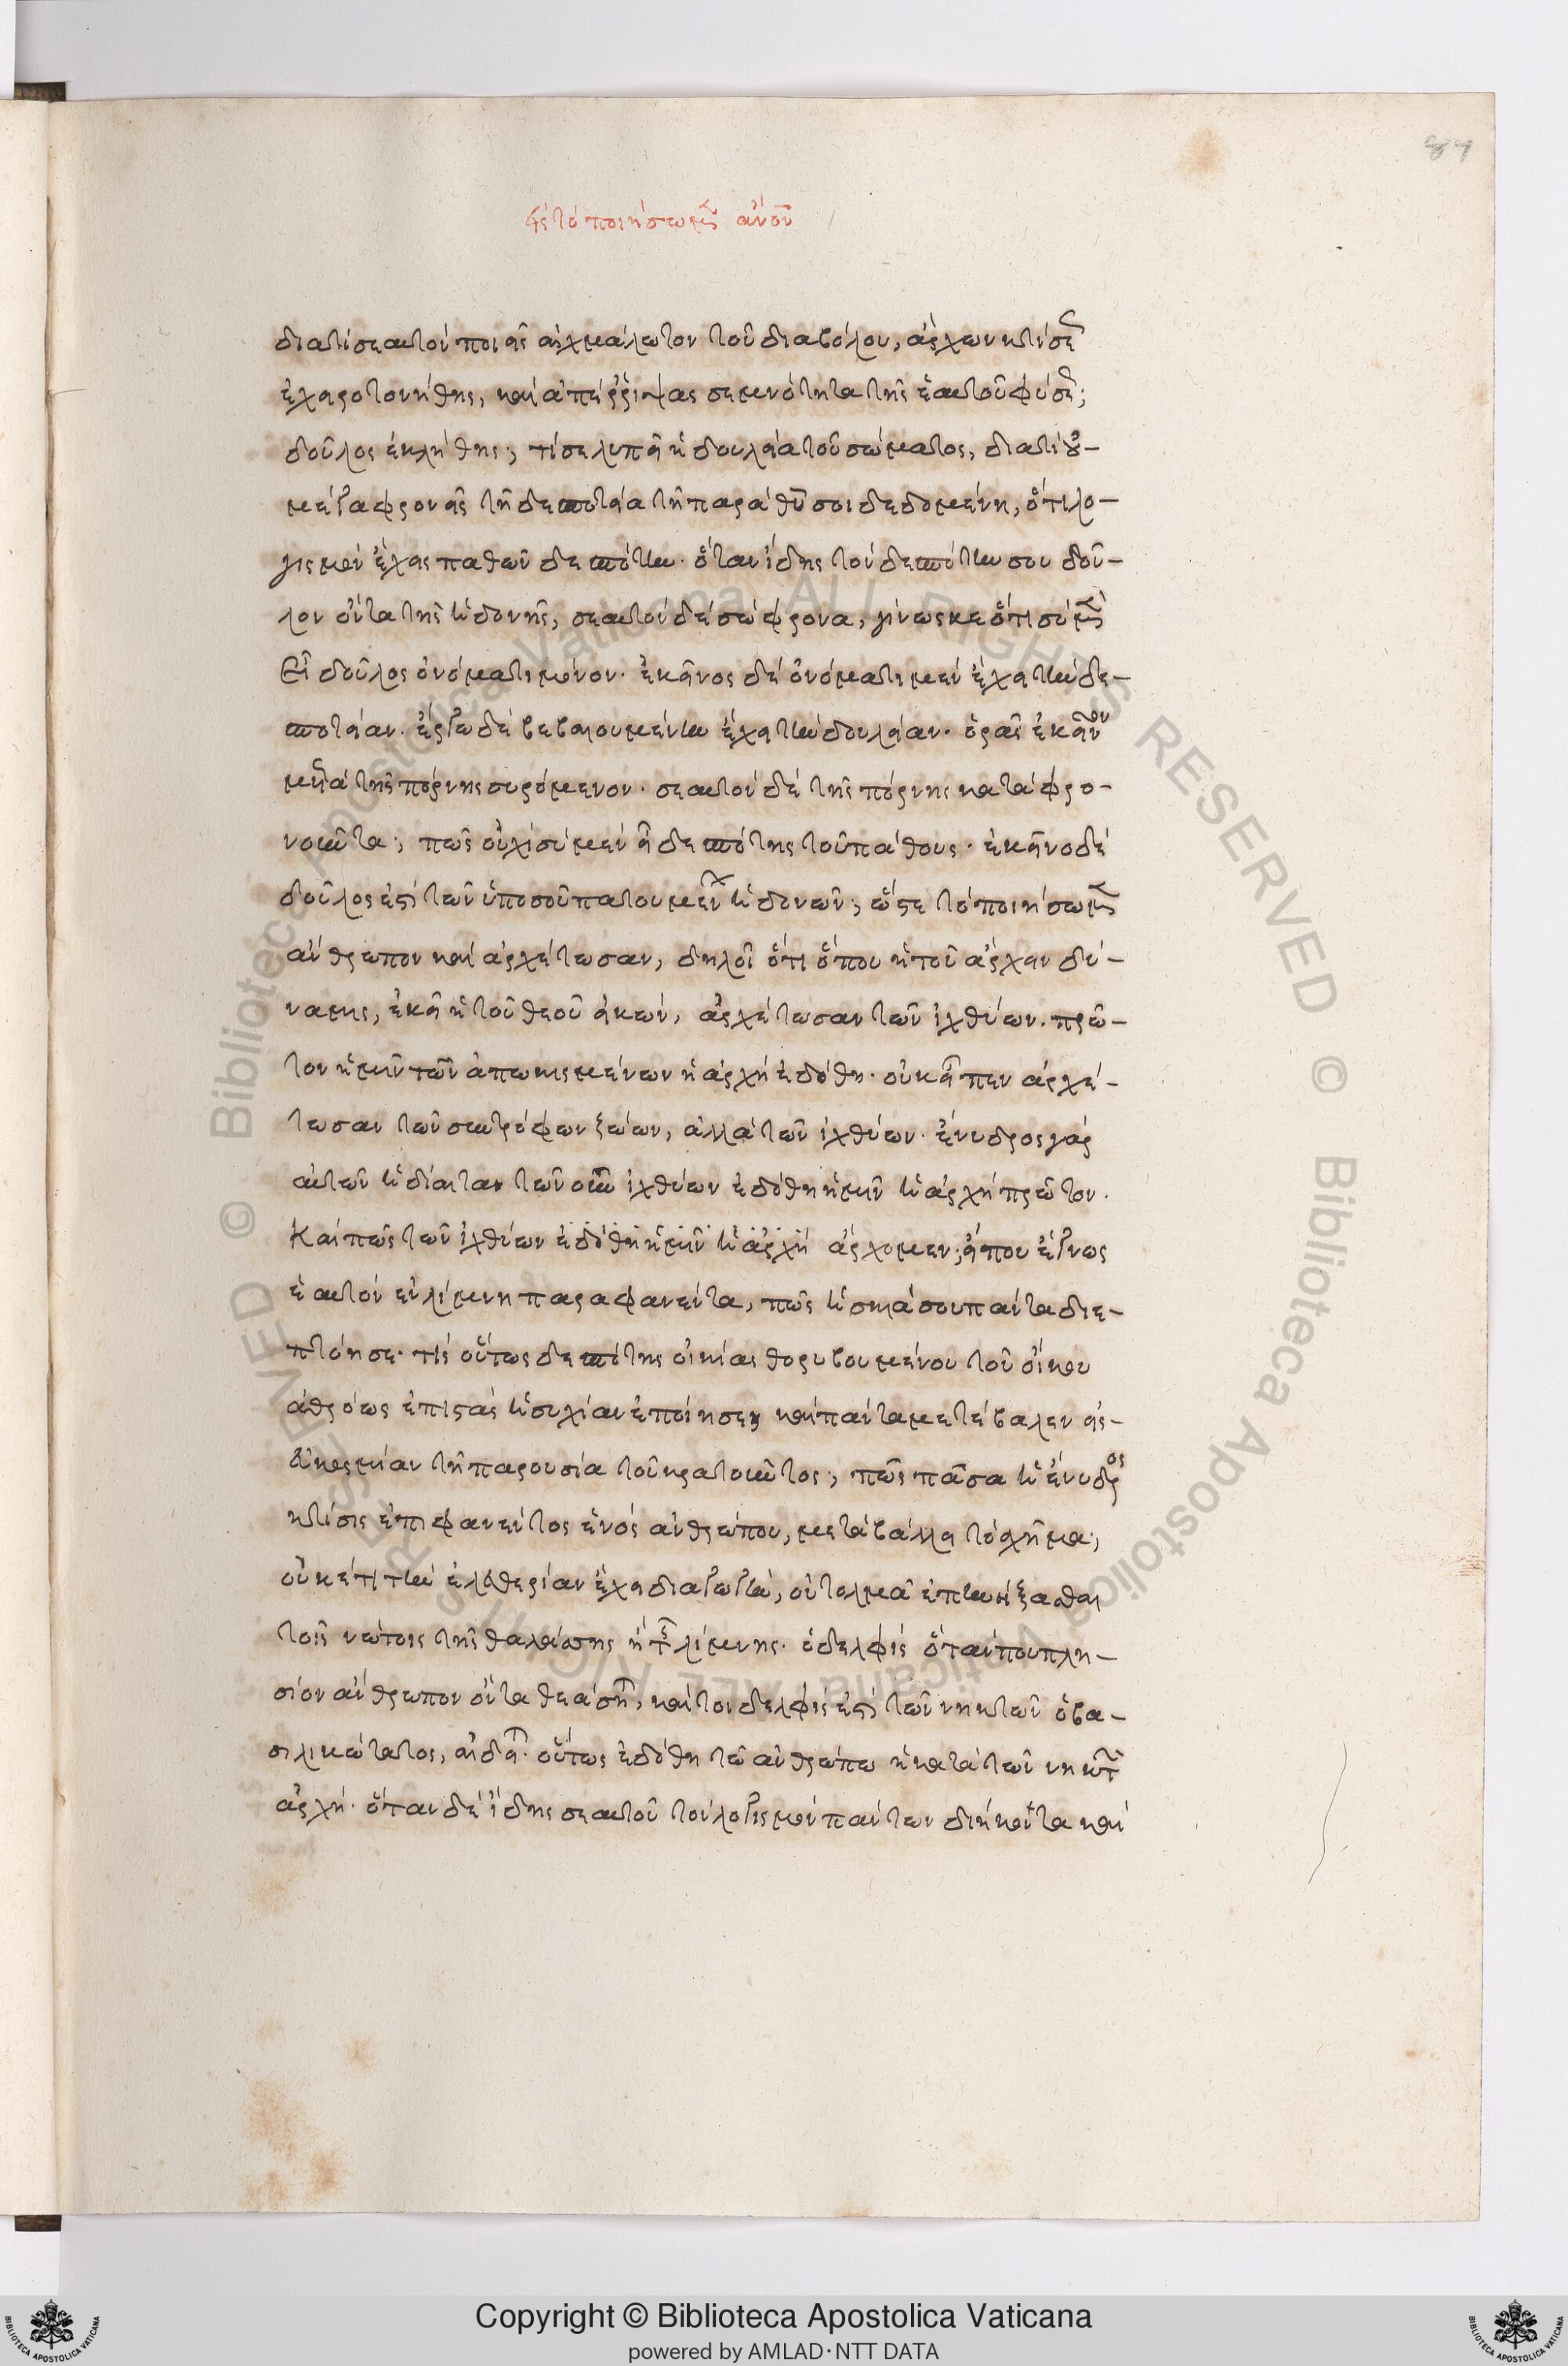 87
εἰς τὸ ποιήσωμεν ἄνον
διατί σεαυτὸν ποιεῖς αἰχμάλωτον τοῦ διαβόλου, ἄρχων κτίσεως
ἐχειροτονήθης, καὶ ἀπέρριψας σεμνότητα τῆς ἑαυτοῦ φύσεως;
δοῦλος ἐκλήθης; τί σε λυπεῖ ἡ δουλεία τοῦ σώματος, διατί οὐ-
μέγα φρονεῖς τῆ δεσποτεία τῆ παρὰ θῦ σοι δεδομένη, ὅτι λο-
γισμὸν ἔχεις παθῶν δεσπότην. ὅταν ἴδης τὸν δεσπότην σου δοῦ-
λον ὄντα τῆς ἡδονῆς, σεαυτὸν δὲ σώφρονα, γίνωσκε ὅτι σὺ μὲν
εἶ δοῦλος ὀνόματι μόνον. ἐκεῖνος δὲ ὀνόματι μὲν ἔχει τὴν δε-
σποτείαν. ἔργω δὲ βεβαιουμένην ἔχει τὴν δουλείαν. ὁρᾶς ἐκεῖνον
μετὰ τῆς πόρνης συρόμενον. σεαυτὸν δὲ τῆς πόρνης καταφρο-
νοῦντα; πῶς οὐχὶ σὺ μὲν εἶ δεσπότης τοῦ πάθους. ἐκεῖνο δὲ
δοῦλος ἐστὶ τῶν ὑπὸ σοῦ πατουμένων ἡδονῶν; ὥστε τὸ ποιήσωμεν
ἄνθρωπον καὶ ἀρχέτωσαν, δηλοῖ ὅτι ὅπου ἡ τοῦ ἄρχειν δύ-
ναμις, ἐκεῖ ἡ τοῦ θεοῦ εἰκών, ἀρχέτωσαν τῶν ἰχθύων. πρῶ-
τον ἡμῖν τῶν ἀπωκισμένων ἡ ἀρχὴ ἐδόθη. οὐκ εἶπεν ἀρχέ-
τωσαν τῶν συντρόφων ζώων, ἀλλὰ τῶν ἰχθύων. ἔνυδρος γὰρ
αὐτῶν ἡ δίαιτα τῶν οὖν ἰχθύων ἐδόθη ἡμῖν ἡ ἀρχὴ πρῶτον.
Καὶ πῶς τῶν ἰχθύων ἐδόθη ἡμῖν ἡ ἀρχὴ ἄρχομεν; εἴπου ἔγνως
ἑαυτὸν ἐν λίμνη παραφανέντα, πῶς ἡ σκιά σου πάντα διε-
πτόησε. τίς οὕτως δεσπότης οἰκίας θορυβουμένου τοῦ οἴκου
ἀθρόως ἐπιστὰς ἡσυχίαν ἐποίησεν καὶ πάντα μετέβαλεν εἰς-
εὐκοσμίαν τῆ παρουσία τοῦ κρατοῦντος; πῶς πᾶσα ἡ ἔνυδρος
κτίσις ἐπιφανέντος ἑνὸς ἀνθρώπου, μεταβάλλει τὸ σχῆμα;
οὐκέτι τὴν ἐλευθερίαν ἔχει διαγωγήν, οὐ τολμᾶ ἐπινήξασθαι
τοῖς νώτοις τῆς θαλάσσης ἢ τῆς λίμνης. ὁ δελφὶς ὅτανπου πλη-
σίον ἄνθρωπον ὄντα θεάσηται, καίτοι δελφὶς ἐστὶ τῶν νηκτῶν ὁ βα-
σιλικώτατος, αἰδεῖται. οὕτως ἐδόθη τῶ ἀνθρώπω ἡ κατὰ τῶν νηκτῶν
ἀρχή. ὅταν δὲ ἴδης σεαυτοῦ τὸν λογισμὸν πάντων διήκοντα καὶ
Copyright © Biblioteca Apostolica Vaticana
powered by AMLAD·NTT DATA